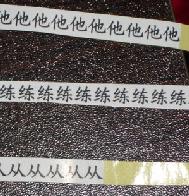 他他他他他他他他他
练练练练练练练练练练
从从从从从从从